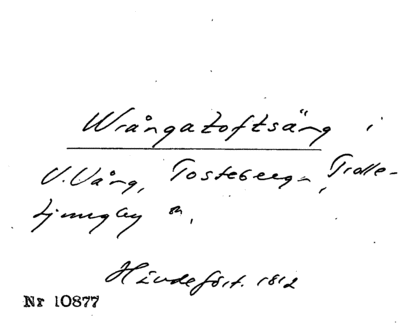 Wrångatoftsäng i
V. Vång, Tosteberga, Trolle-
Ljungby sn.
Händförst. 1812
Nr 10877